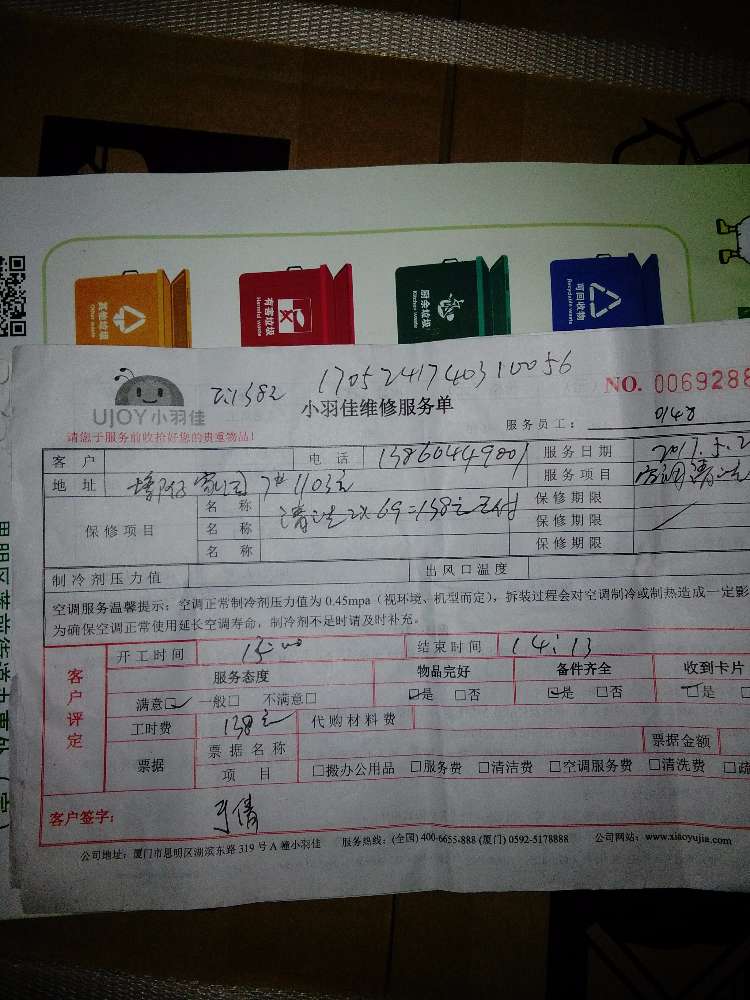 其他垃圾
Other waste
有害垃圾
Harmful waste
厨余垃圾
Kitchen waste
可回收物
Recyclable waste
1705241740310056
NO. 0069288
UJOY小羽佳
小羽佳维修服务单
服务员工: 0148
请您于服务前收拾好您的贵重物品!
客户 电话 13860449001 服务日期 2017.5.2
地址 7# 1103 服务项目 空调清洗
保修项目 名称 清洗2×69=138元已付 保修期限
名称 保修期限
名称 保修期限
制冷剂压力值 出风口温度
空调服务温馨提示: 空调正常制冷剂压力值为 0.45mpa (视环境、机型而定), 拆装过程会对空调制冷或制热造成一定影
为确保空调正常使用延长空调寿命, 制冷剂不足时请及时补充。
客户评定
开工时间 13:00 结束时间 14:13
服务态度 物品完好 备件齐全 收到卡片
满意□ 一般□ 不满意□ □是 □否 □是 □否 □是 □否
工时费 138元 代购材料费
票据 票据名称 票据金额
项目 □搬办公用品 □服务费 □清洁费 □空调服务费 □清洗费 □疏
客户签字: 于倩
公司地址: 厦门市思明区湖滨东路 319 号 A 幢小羽佳 服务热线: (全国) 400-6655-888 (厦门) 0592-5178888 公司网站: www.xiaoyujia.com